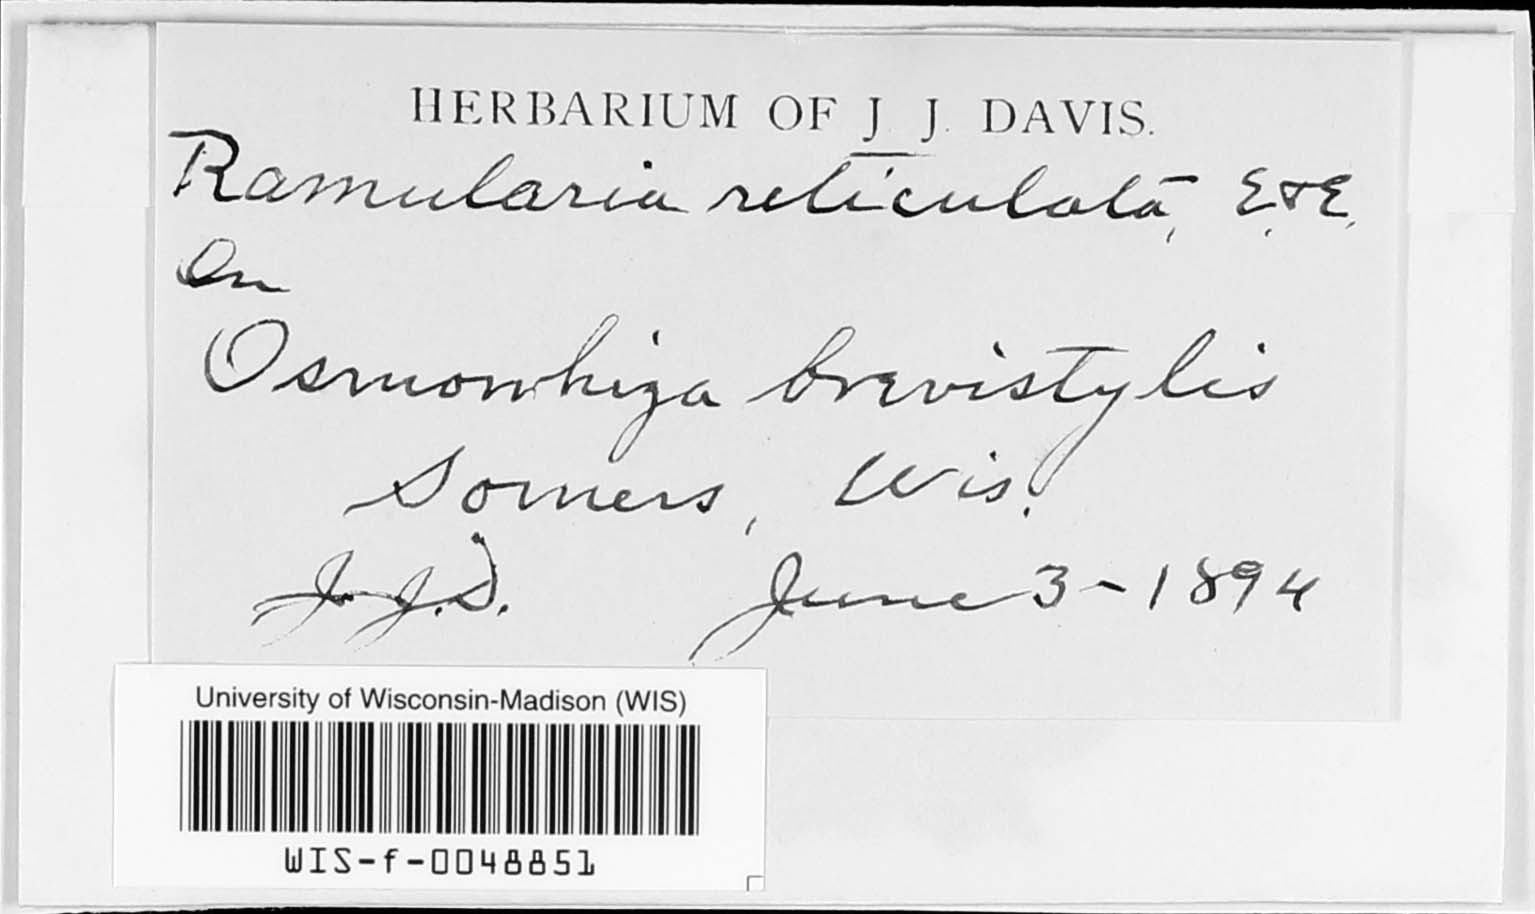 HERBARIUM OF J. J. DAVIS.
Ramularia reticulata, E. & E.
On
Osmorrhiza brevistylis
Somers, Wis.
J. J. D. June 3-1894
University of Wisconsin-Madison (WIS)
WIS-f-0048851